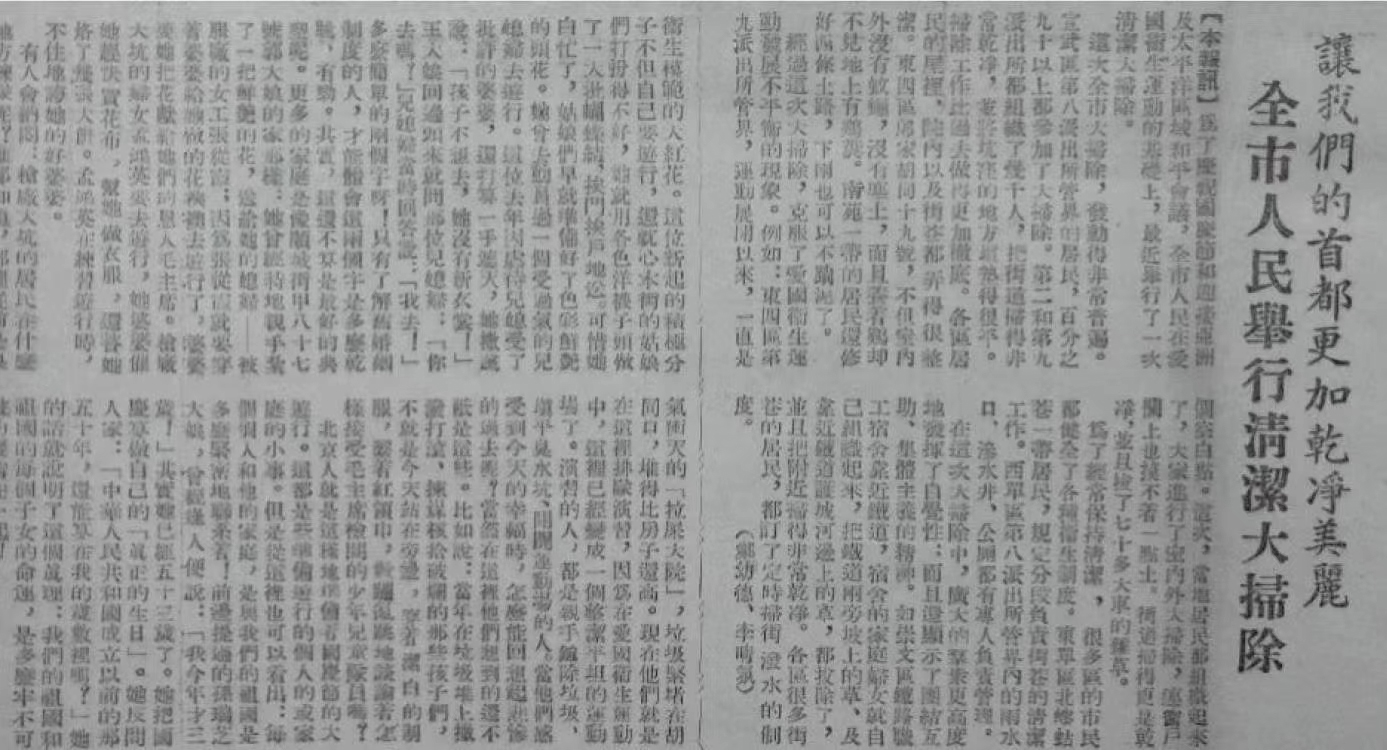 讓我們的首都更加乾淨美麗
全市人民舉行清潔大掃除
【本報訊】爲了慶祝國慶節和迎接亞洲
及太平洋區域和平會議,全市人民在愛
國衛生運動的基礎上,最近舉行了一次
清潔大掃除。
這次全市大掃除,發動得非常普遍。
宣武區第八派出所管界的居民,百分之
九十以上都參加了大掃除。第二和第九
派出所都組織了幾千人,把街道掃得非
常乾淨,並將坑洼的地方填墊得很平。
掃除工作比過去做得更加徹底。各區居
民的屋裡,院內以及街巷都弄得很整
潔。東四區席家胡同十九號,不但室內
外沒有蚊蠅,沒有塵土,而且養着鷄却
不見地上有鷄糞。南苑一帶的居民還修
好四條土路,下雨也可以不踹泥了。
經過這次大掃除,克服了愛國衛生運
動發展不平衡的現象。例如:東四區第
九派出所管界,運動展開以來,一直是
個空白點。這次,當地居民都組織起來
了,大家進行了室內外大掃除,連窗戶
欄上也摸不着一點土。街道掃得更是乾
淨,並且撿了七十多大車的雜草。
爲了經常保持清潔,很多區的市民
都健全了各種衛生制度。東單區北總姑
巷一帶居民,規定分段負責街巷的清潔
工作。西單區第八派出所管界內的雨水
口、滲水井、公厠都有專人負責管理。
在這次大掃除中,廣大的羣衆更高度
地發揮了自覺性;而且還顯示了團結互
助、集體主義的精神。如崇文區鐵路職
工宿舍靠近鐵道,宿舍的家庭婦女就自
己組織起來,把鐵道兩旁坡上的草、及
靠近鐵道護城河邊上的草,都拔除了,
並且把附近掃得非常乾淨。各區很多街
巷的居民,都訂了定時掃街潑水的制
度。 (鄭幼德、李晴氛)
衛生模範的大紅花。這位新起的積極分
子不但自己要遊行,還耽心本街的姑娘
們打扮得不好,她就用各色洋襪子頭做
了一大批蝴蝶結,挨門挨戶地送。可惜她
白忙了,姑娘們早就準備好了色彩鮮艷
的頭花。她曾去動員過一個受過氣的兒
媳婦去遊行。這位去年因虐待兒媳受了
批評的婆婆,還打算一手遮天,她撒謊
說:「孩子不想去,她沒有新衣裳!」
王大娘回過頭來就問那位兒媳婦:「你
去嗎?」兒媳婦當時回答說:「我去!」
多麽簡單的兩個字呀!只有了解舊婚姻
制度的人,才能體會這兩個字是多麽乾
脆,有勁。其實,這還不算是最好的典
型呢。更多的家庭是像順城街甲八十七
號郭大娘的家那樣:她曾經特地親手紮
了一把鮮艷的花,送給她的媳婦——被
服廠的女工張從宸;因爲張從宸就要穿
着婆婆給她做的花襖裡去遊行了,婆婆
要她把花獻給她們的恩人毛主席。槍廠
大坑的婦女孟鴻英要去遊行,她婆婆催
她趕快買花布,幫她做衣服,還替她
烙了幾張大餅。孟鴻英在練習遊行時,
不住地誇她的好婆婆。
有人會納悶:槍廠大坑的居民在什麽
氣衝天的「拉屎大院」,垃圾緊堵在胡
同口,堆得比房子還高。現在他們就是
在這裡排隊演習,因爲在愛國衛生運動
中,這裡已經變成一個整潔平坦的運動
場了。演習的人,都是親手鏟除垃圾、
填平臭水坑、開闢運動場的人。當他們感
受到今天的幸福時,怎麽能回想起悲慘
的過去呢?當然在這裡他們想到的還不
祇是這些。比如說:當年在垃圾堆上撒
潑打滾、揀煤核拾破爛的那些孩子們,
不就是今天站在旁邊,穿着潔白的制
服,繫着紅領巾,歡蹦亂跳地談論着怎
樣接受毛主席檢閱的少年兒童隊員嗎?
北京人就是這樣地準備着國慶節的大
遊行。這都是些準備遊行的個人的或家
庭的小事。但是從這裡也可以看出:每
個個人和他的家庭,是與我們的祖國是
多麽緊密地聯系着!前邊提過的孫瑞芝
大娘,曾經逢人便說:「我今年才三
歲!」其實她已經五十三歲了。她把國
慶算做自己的「眞正的生日」。她反問
人家:「中華人民共和國成立以前的那
五十年,還能算在我的歲數裡嗎?」她
的話就說明了這個眞理:我們的祖國和
祖國的每個子女的命運,是多麽牢不可